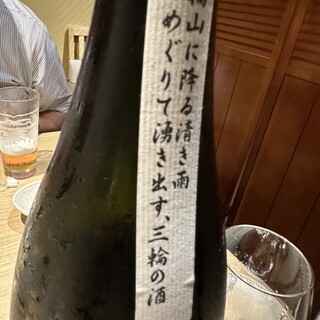 山に降る清き雨
めぐりて湧き出す、三輪の酒